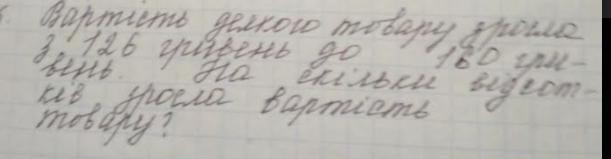 Вартість деякого товару зросла
з 126 гривень до 180 гри-
вень. На скільки відсот-
ків зросла вартість
товару?